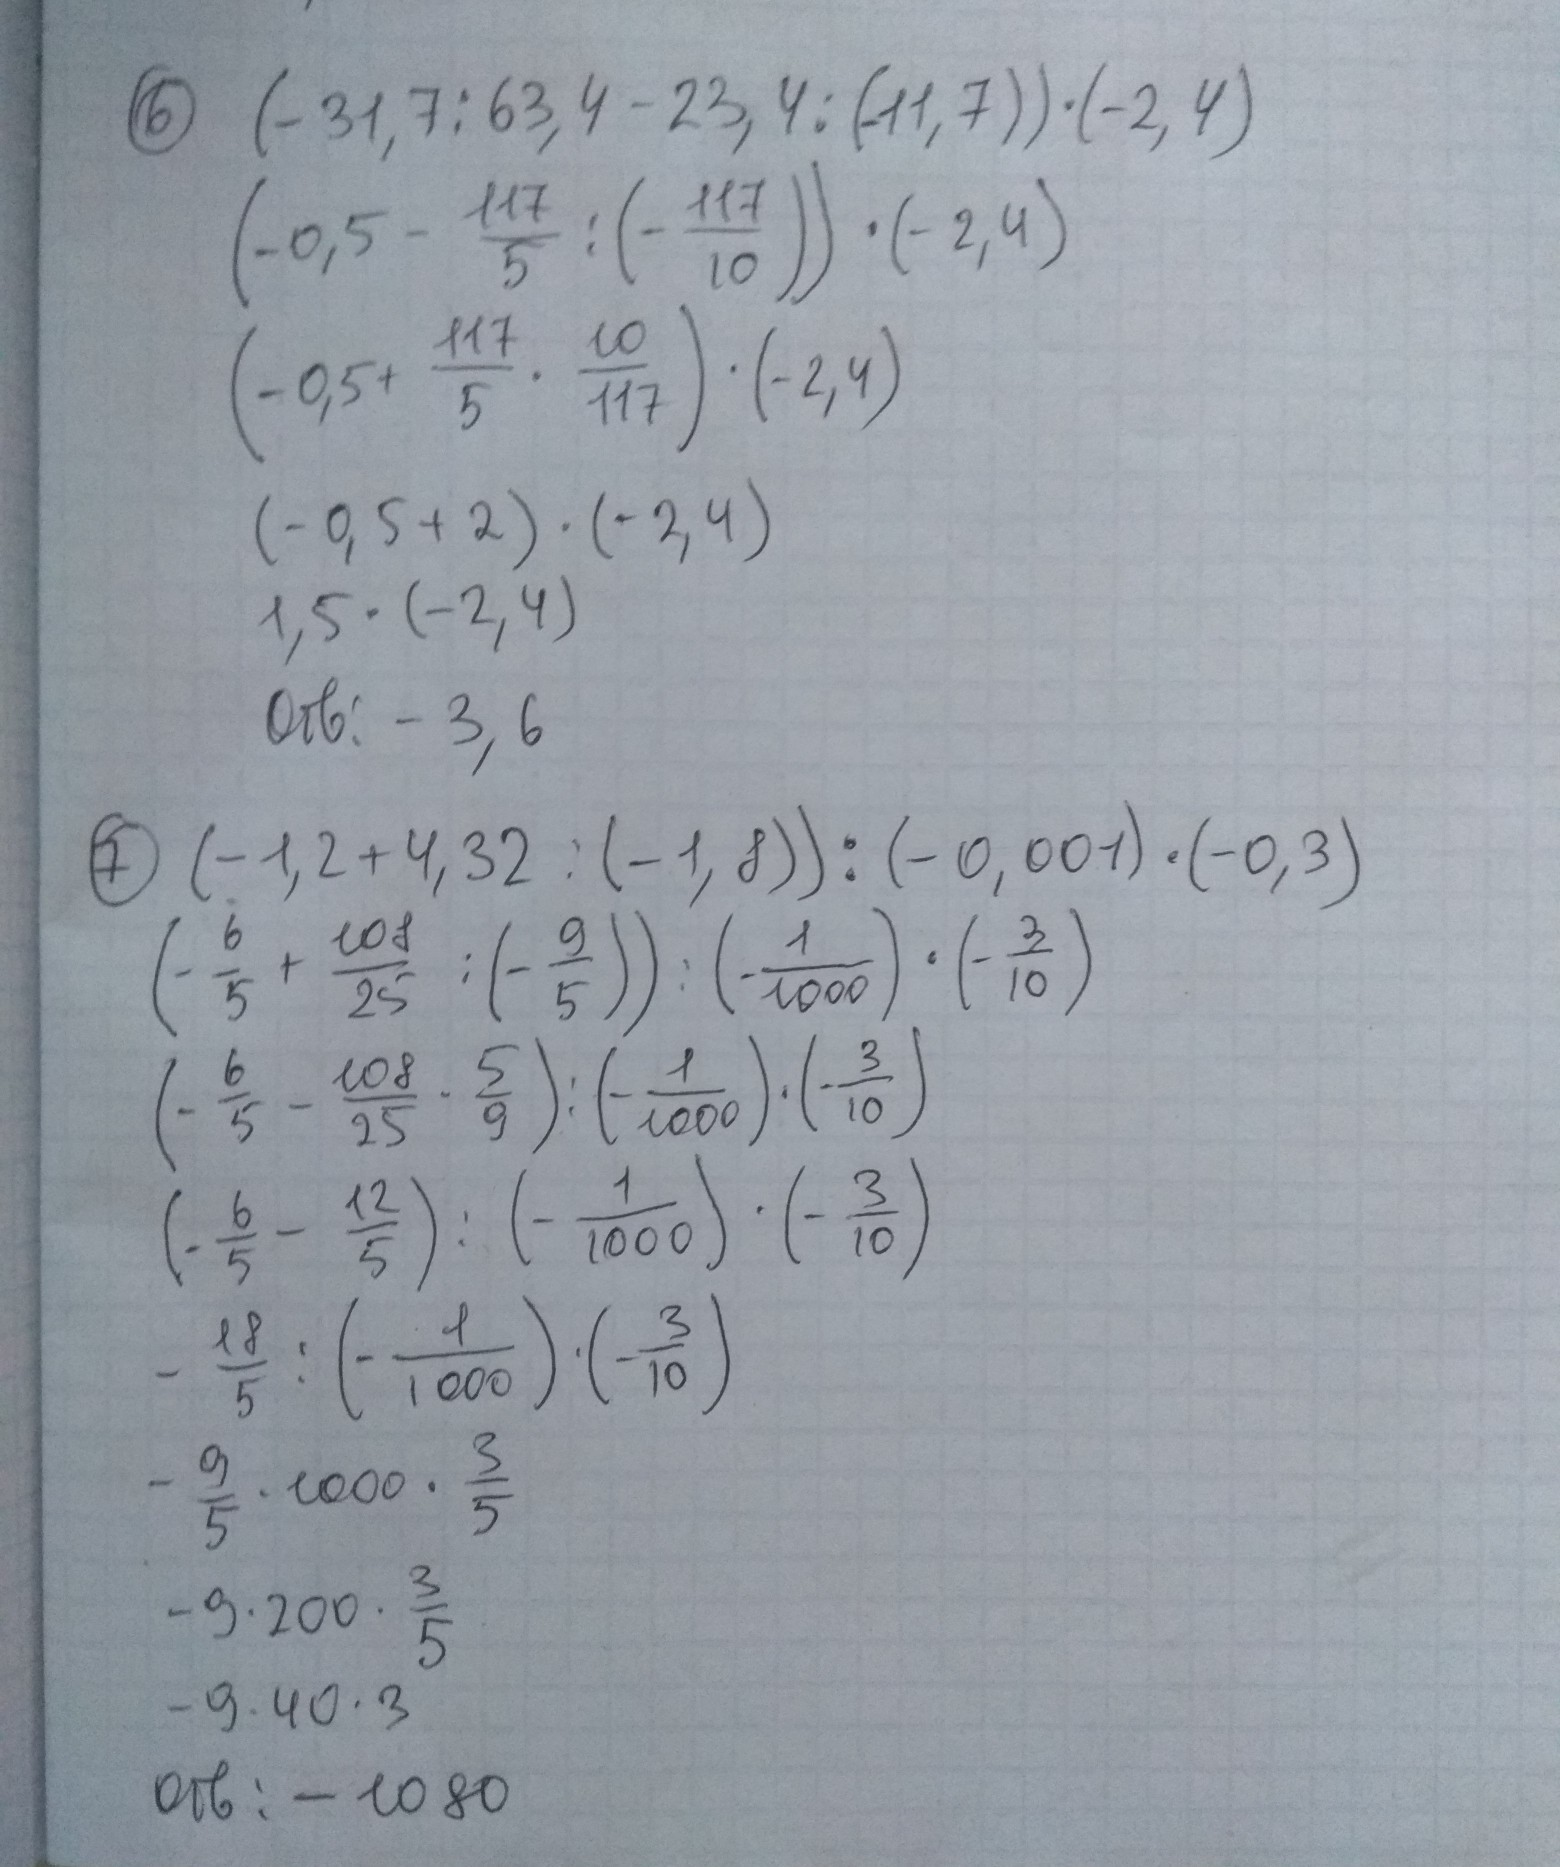 6 (-31,7:63,4-23,4:(-11,7))·(-2,4)
(-0,5 - 117/5 : (-117/10))·(-2,4)
(-0,5+ 117/5 · 10/117)·(-2,4)
(-0,5+2)·(-2,4)
1,5·(-2,4)
Отв: -3,6
7 (-1,2+4,32:(-1,8)):(-0,001)·(-0,3)
(-6/5 + 108/25 : (-9/5)) : (-1/1000)·(-3/10)
(-6/5 - 108/25 · 5/9) : (-1/1000)·(-3/10)
(-6/5 - 12/5) : (-1/1000)·(-3/10)
-18/5 : (-1/1000)·(-3/10)
-9/5 · 1000 · 3/5
-9·200·3/5
-9·40·3
Отв: -1080